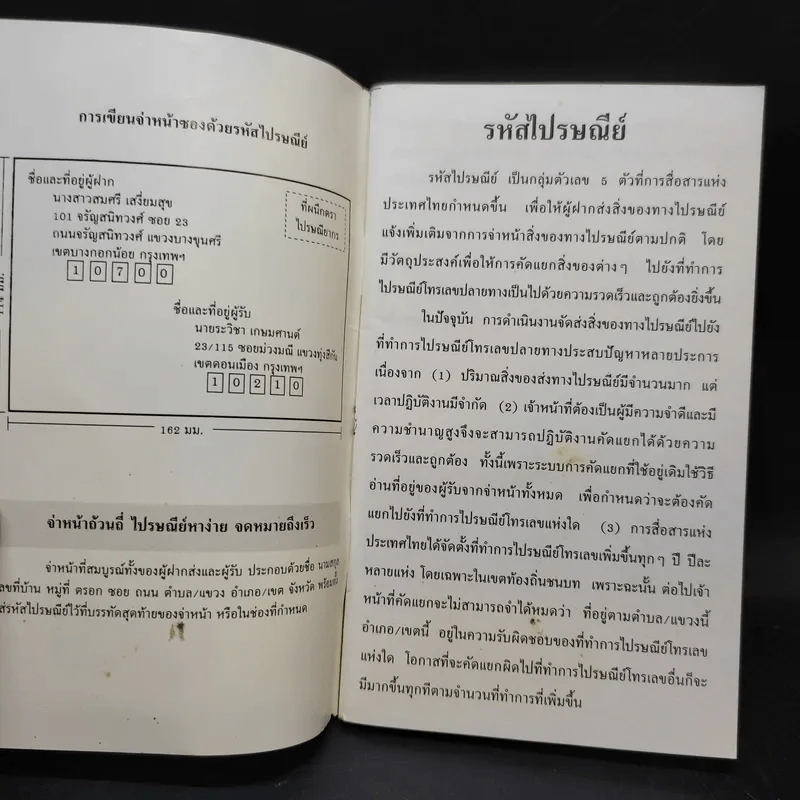 การเขียนจ่าหน้าซองด้วยรหัสไปรษณีย์
ชื่อและที่อยู่ผู้ฝาก
นางสาวสมศรี เสงี่ยมสุข
101 จรัญสนิทวงศ์ ซอย 23
ถนนจรัญสนิทวงศ์ แขวงบางขุนศรี
เขตบางกอกน้อย กรุงเทพฯ
1 0 7 0 0
ที่ผนึกตรา
ไปรษณียากร
ชื่อและที่อยู่ผู้รับ
นายระวิชา เกษมศานต์
23/115 ซอยม่วงมณี แขวงทุ่งสีกัน
เขตดอนเมือง กรุงเทพฯ
1 0 2 1 0
114 มม.
162 มม.
จ่าหน้าถ้วนถี่ ไปรษณีย์หาง่าย จดหมายถึงเร็ว
จ่าหน้าที่สมบูรณ์ทั้งของผู้ฝากส่งและผู้รับ ประกอบด้วยชื่อ นามสกุล
เลขที่บ้าน หมู่ที่ ตรอก ซอย ถนน ตำบล/แขวง อำเภอ/เขต จังหวัด พร้อมทั้ง
ใส่รหัสไปรษณีย์ไว้ที่บรรทัดสุดท้ายของจ่าหน้า หรือในช่องที่กำหนด
รหัสไปรษณีย์
รหัสไปรษณีย์ เป็นกลุ่มตัวเลข 5 ตัวที่การสื่อสารแห่ง
ประเทศไทยกำหนดขึ้น เพื่อให้ผู้ฝากส่งสิ่งของทางไปรษณีย์
แจ้งเพิ่มเติมจากการจ่าหน้าสิ่งของทางไปรษณีย์ตามปกติ โดย
มีวัตถุประสงค์เพื่อให้การคัดแยกสิ่งของต่างๆ ไปยังที่ทำการ
ไปรษณีย์โทรเลขปลายทางเป็นไปด้วยความรวดเร็วและถูกต้องยิ่งขึ้น
ในปัจจุบัน การดำเนินงานจัดส่งสิ่งของทางไปรษณีย์ไปยัง
ที่ทำการไปรษณีย์โทรเลขปลายทางประสบปัญหาหลายประการ
เนื่องจาก (1) ปริมาณสิ่งของส่งทางไปรษณีย์มีจำนวนมาก แต่
เวลาปฏิบัติงานมีจำกัด (2) เจ้าหน้าที่ต้องเป็นผู้มีความจำดีและมี
ความชำนาญสูงจึงจะสามารถปฏิบัติงานคัดแยกได้ด้วยความ
รวดเร็วและถูกต้อง ทั้งนี้เพราะระบบการคัดแยกที่ใช้อยู่เดิมใช้วิธี
อ่านที่อยู่ของผู้รับจากจ่าหน้าทั้งหมด เพื่อกำหนดว่าจะต้องคัด
แยกไปยังที่ทำการไปรษณีย์โทรเลขแห่งใด (3) การสื่อสารแห่ง
ประเทศไทยได้จัดตั้งที่ทำการไปรษณีย์โทรเลขเพิ่มขึ้นทุกๆ ปี ปีละ
หลายแห่ง โดยเฉพาะในเขตท้องถิ่นชนบท เพราะฉะนั้น ต่อไปเจ้า
หน้าที่คัดแยกจะไม่สามารถจำได้หมดว่า ที่อยู่ตามตำบล/แขวงนี้
อำเภอ/เขตนี้ อยู่ในความรับผิดชอบของที่ทำการไปรษณีย์โทรเลข
แห่งใด โอกาสที่จะคัดแยกผิดไปที่ทำการไปรษณีย์โทรเลขอื่นก็จะ
มีมากขึ้นทุกทีตามจำนวนที่ทำการที่เพิ่มขึ้น